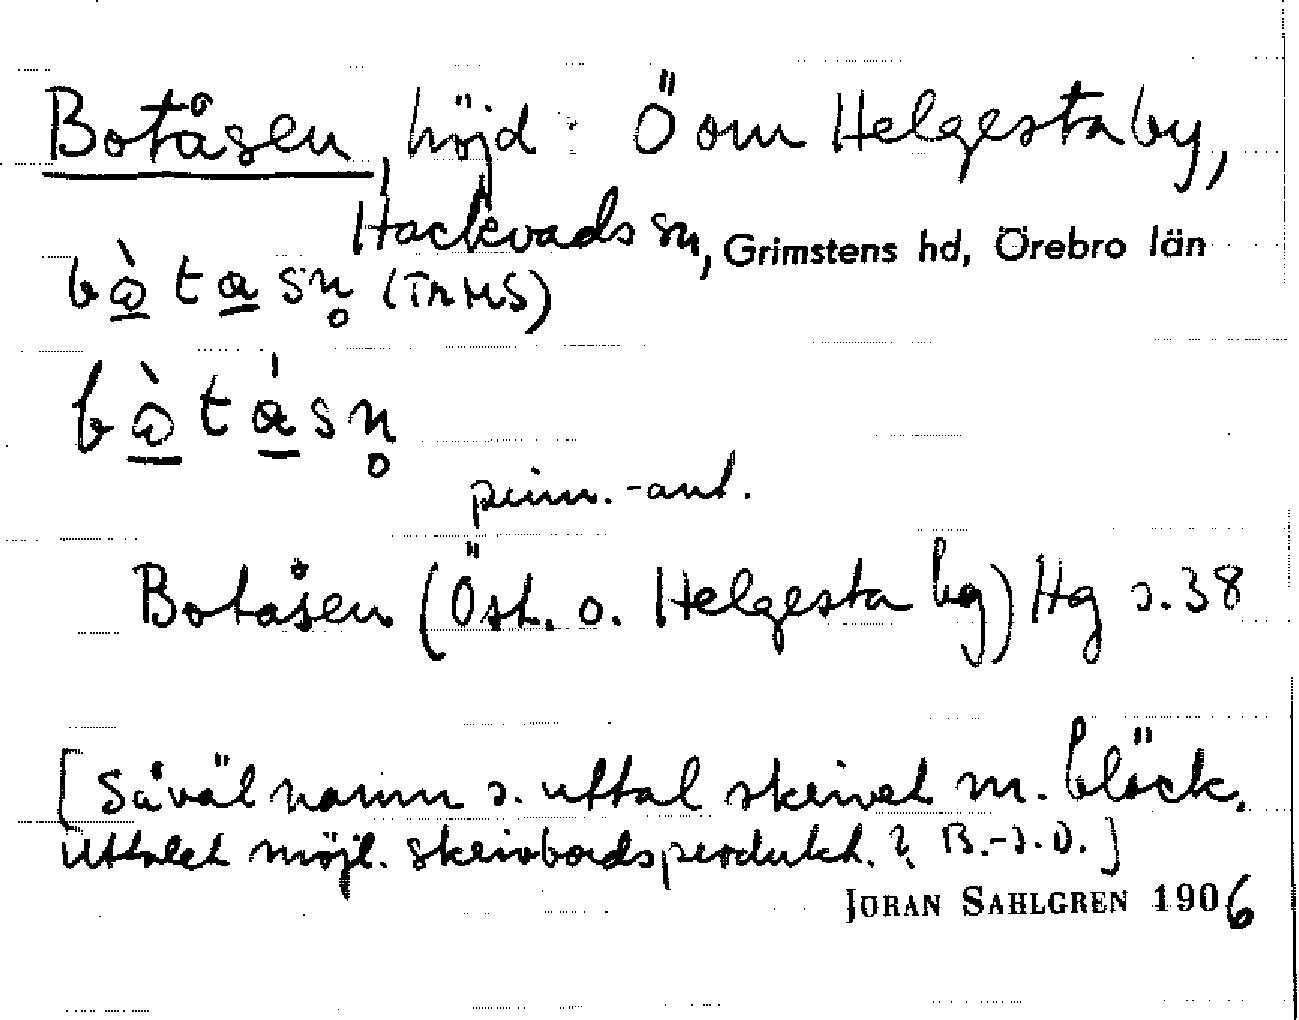 Botåsen, höjd: Ö om Helgesta by,
Hackvads sn, Grimstens hd, Örebro län
bàtasn̥ (TnMS)
bàtásn̥
prim.-ant.
Botåsen (Öst. o. Helgesta by) Hg s. 38
[Såväl namn s. uttal skrivet m. bläck.
Uttalet möjl. skrivbordsprodukt.? B.-S.O.]
JÖRAN SAHLGREN 1906